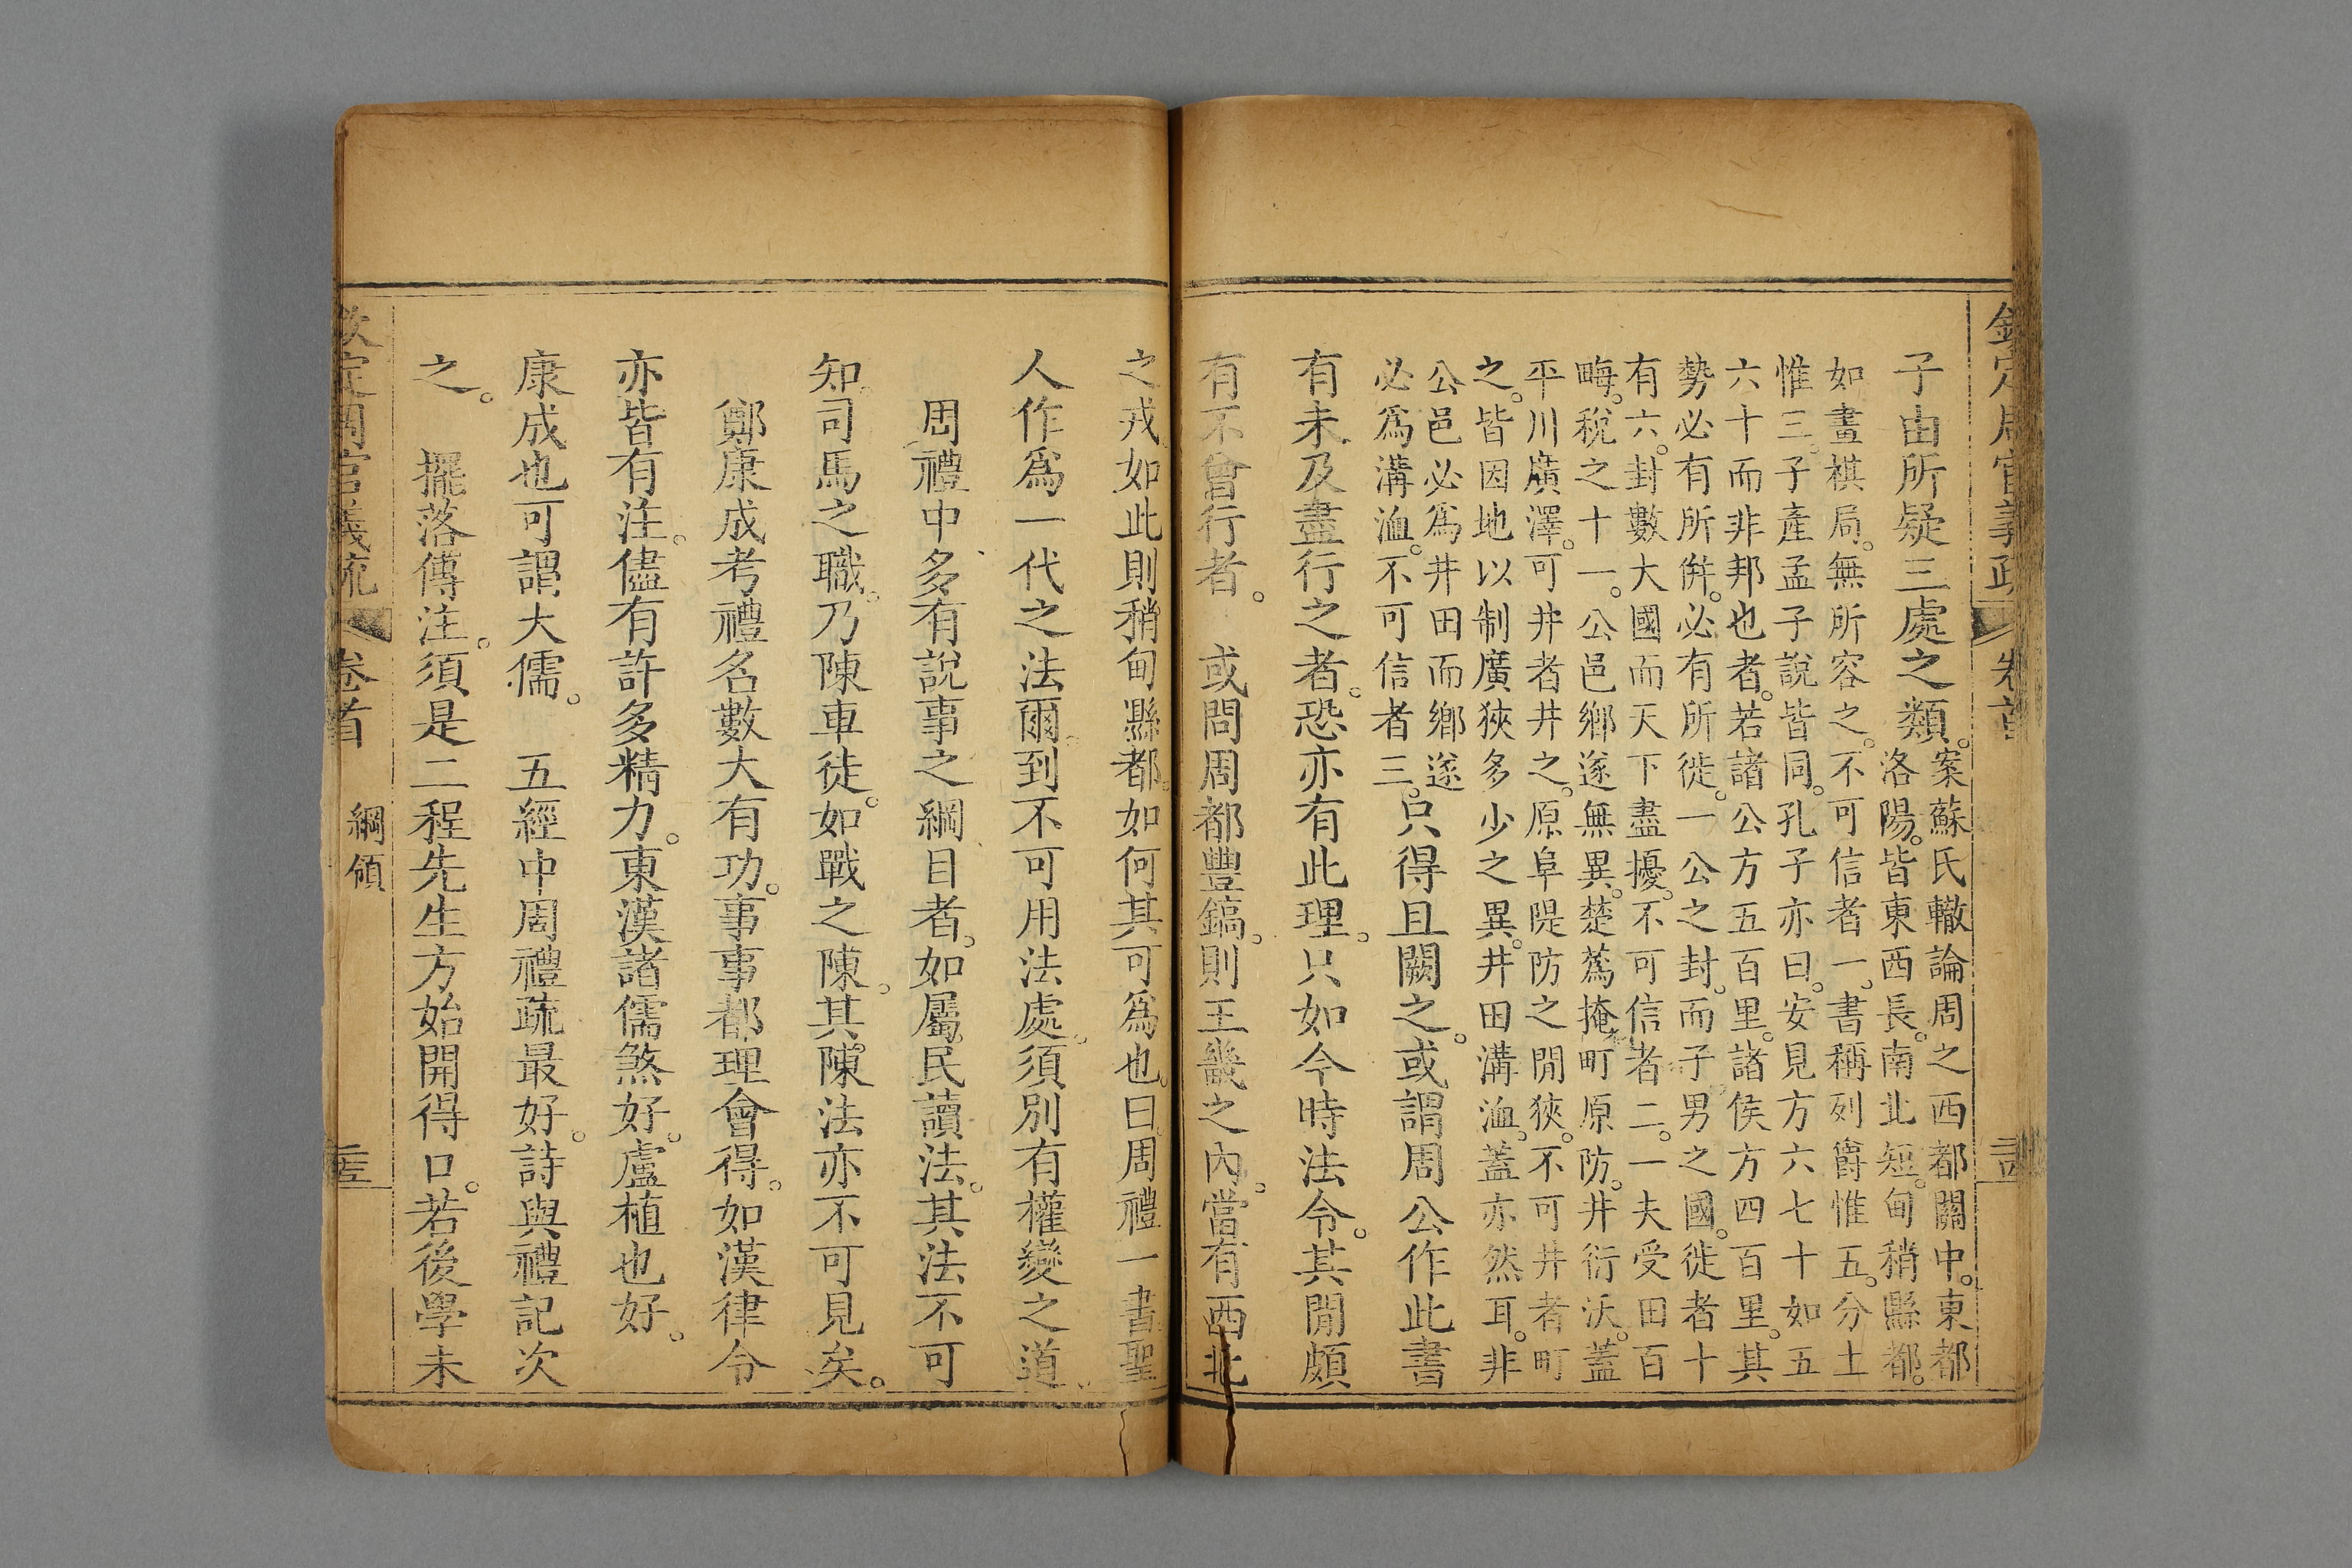 欽定周官義疏 卷首
子由所疑三處之類。
案蘇氏轍論周之西都關中。東都
洛陽。皆東西長。南北短。甸稍縣都。
如畫棋局。無所容之。不可信者一。書稱列爵惟五。分土
惟三。子產孟子說皆同。孔子亦曰。安見方六七十如五
六十而非邦也者。若諸公方五百里。諸侯方四百里。其
勢必有所倂。必有所徙。一公之封。而子男之國。徙者十
有六。封數大國而天下盡擾。不可信者二。一夫受田百
畮。稅之十一。公邑鄉遂無異。楚蒍掩町原防。井衍沃。蓋
平川廣澤。可井者井之。原阜隄防之閒狹。不可井者町
之。皆因地以制廣狹多少之異。井田溝洫。蓋亦然耳。非
公邑必爲井田而鄉遂
必爲溝洫。不可信者三。
只得且闕之。或謂周公作此書
有未及盡行之者。恐亦有此理。只如今時法令。其閒頗
有不會行者。 或問周都豐鎬。則王畿之內。當有西北
之戎。如此則稍甸縣都。如何其可爲也。曰周禮一書聖
人作爲一代之法爾。到不可用法處。須別有權變之道。
周禮中多有說事之綱目者。如屬民讀法。其法不可
知。司馬之職。乃陳車徒。如戰之陳。其陳法亦不可見矣。
鄭康成考禮名數大有功。事事都理會得。如漢律令
亦皆有注。儘有許多精力。東漢諸儒煞好。盧植也好。
康成也可謂大儒。 五經中周禮疏最好。詩與禮記次
之。 擺落傳注。須是二程先生方始開得口。若後學未
欽定周官義疏 卷首 綱領